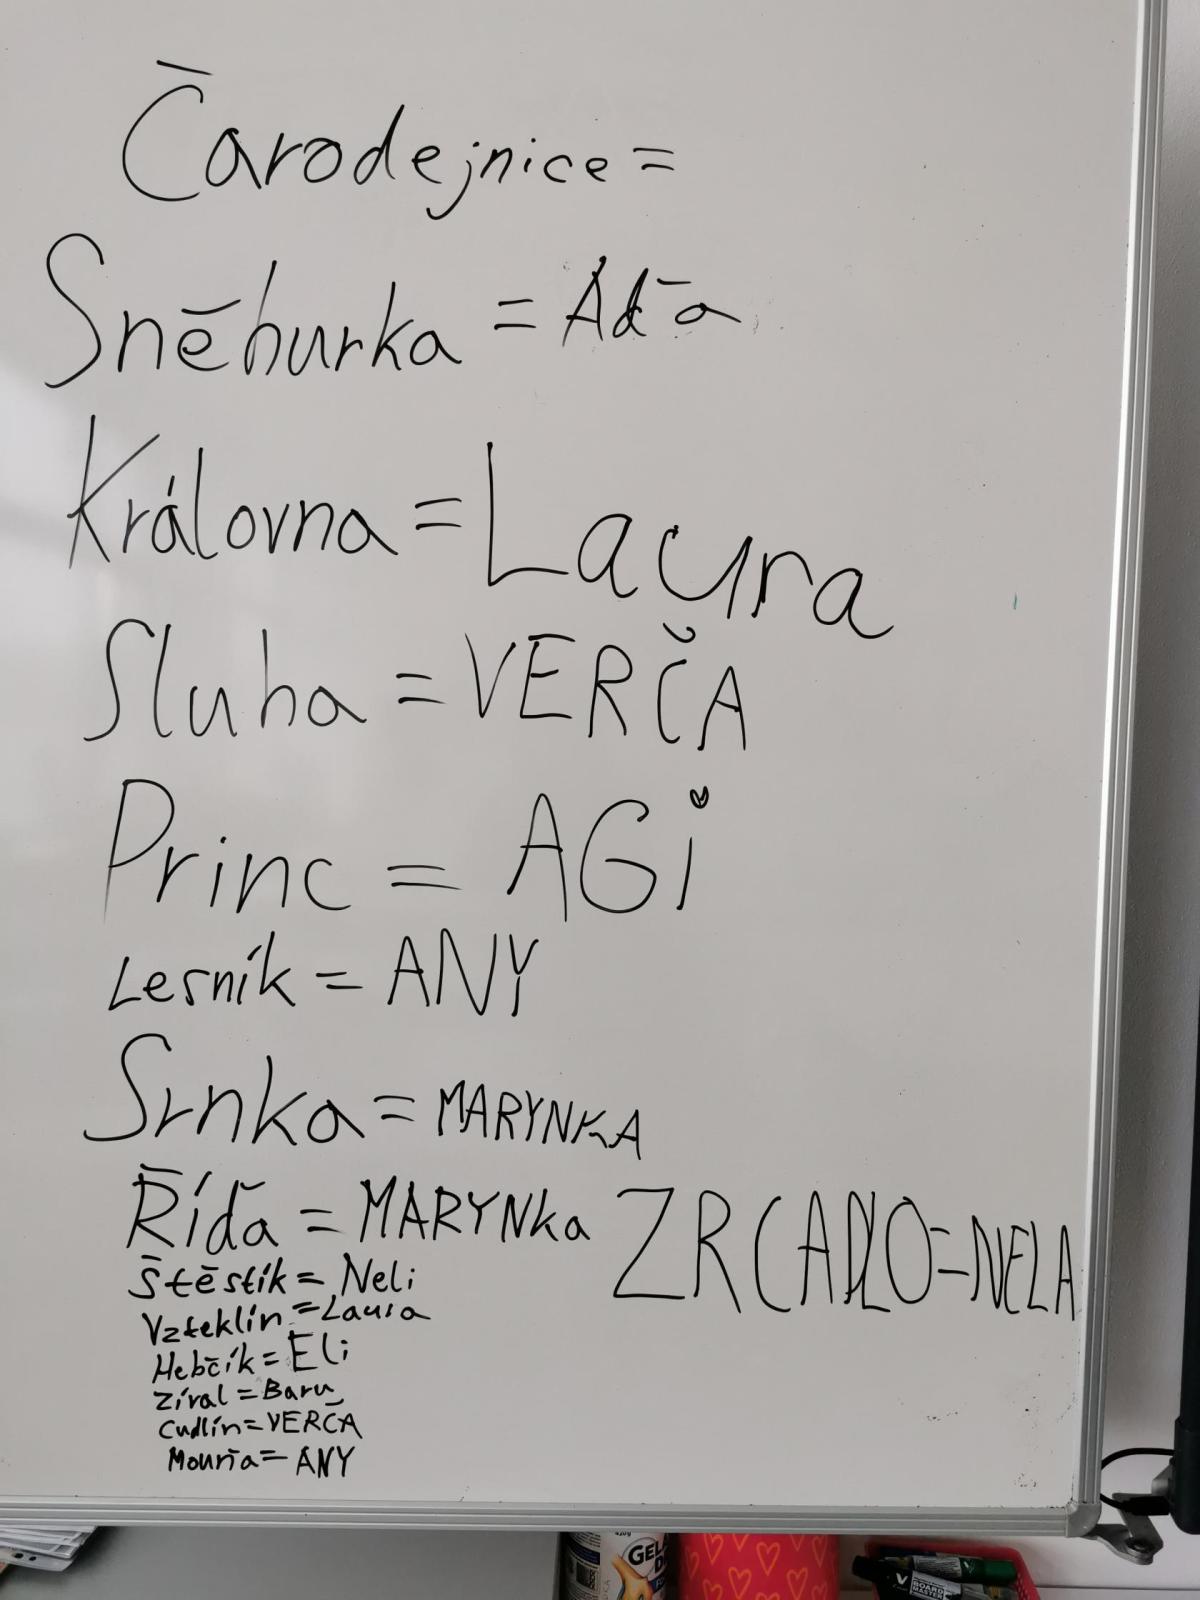 Čarodejnice =
Sněhurka = Aďa
Královna = Laura
Sluha = VERČA
Princ = AGi
Lesník = ANY
Srnka = MARYNKA
Říďa = MARYNKa
ZRCADLO = NELA
Štěstík = Neli
Vzteklín = Laura
Hebčík = Eli
Zíral = Baru
Cudlín = VERČA
Mouřa = ANY
GELA
BOARD
MASTER